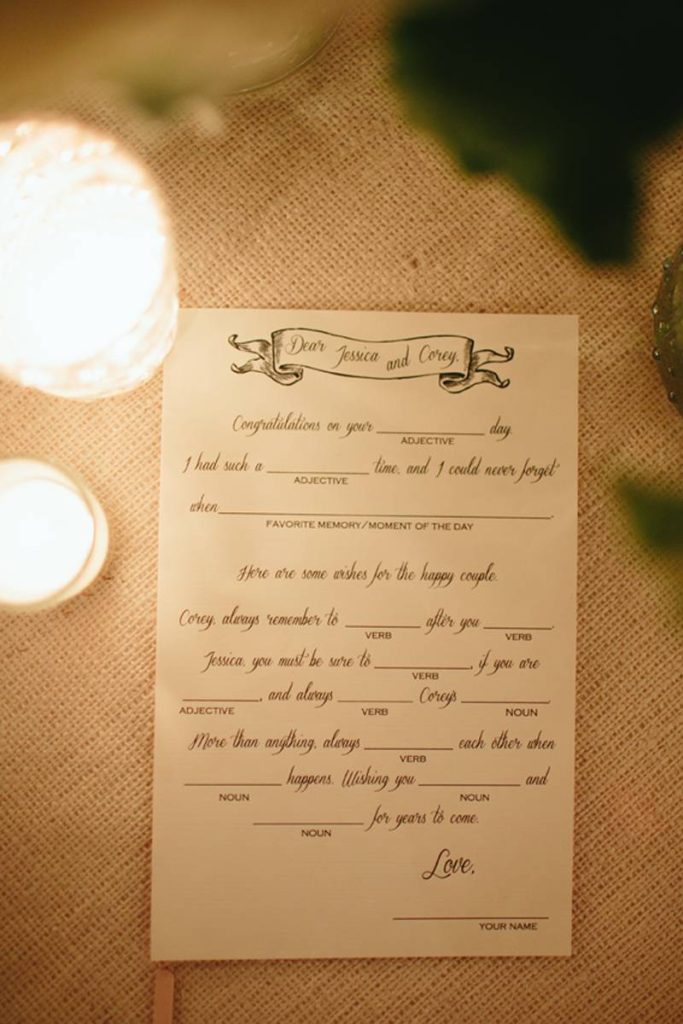 Dear Jessica and Corey,
Congratulations on your ____________ day.
ADJECTIVE
I had such a ____________ time, and I could never forget
ADJECTIVE
when ________________________________________.
FAVORITE MEMORY/MOMENT OF THE DAY
Here are some wishes for the happy couple.
Corey, always remember to _________ after you ________.
VERB VERB
Jessica, you must be sure to ____________, if you are
VERB
_________, and always _________ Corey's __________.
ADJECTIVE VERB NOUN
More than anything, always __________ each other when
VERB
____________ happens. Wishing you ____________ and
NOUN NOUN
_____________ for years to come.
NOUN
Love,
___________________
YOUR NAME